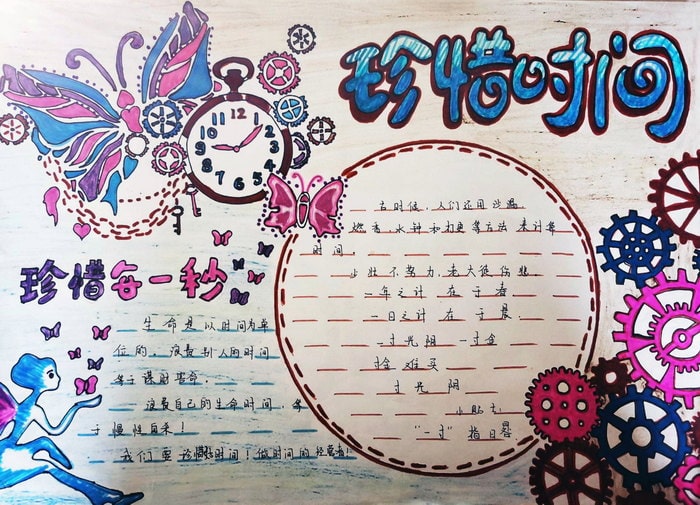 珍惜时间
12
珍惜每一秒
古时候，人们还用沙漏
燃香，水钟和打更等方法来计算
时间。
少壮不努力，老大徒伤悲
一年之计在于春
一日之计在于晨
一寸光阴一寸金
寸金难买
寸光阴
小贴士：
"一寸"指日晷
生命是以时间为单
位的，浪费别人的时间
等于谋财害命。
浪费自己的生命时间，等
于慢性自杀！
我们要珍惜时间！做时间的